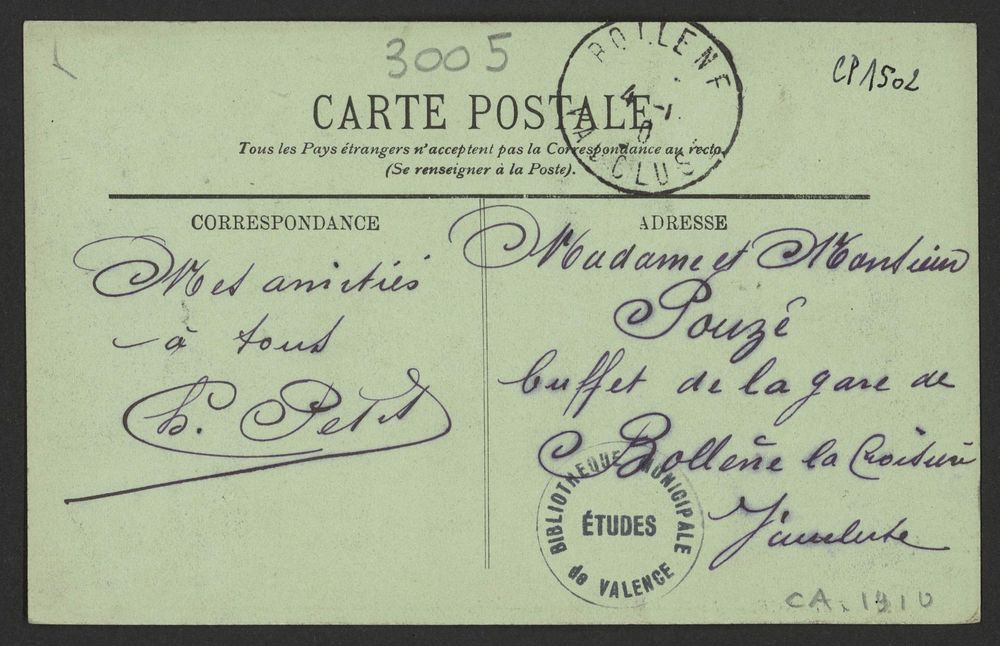 3005
CP1502
BOLLENE
4 -1
VAUCLUSE
CARTE POSTALE
Tous les Pays étrangers n'acceptent pas la Correspondance au recto.
(Se renseigner à la Poste).
CORRESPONDANCE
Mes amitiés
à tous
Petit
ADRESSE
Madame et Monsieur
Pouzé
buffet de la gare de
Bollène la Croisière
Vaucluse
BIBLIOTHEQUE MUNICIPALE
ÉTUDES
de VALENCE
CA. 1910